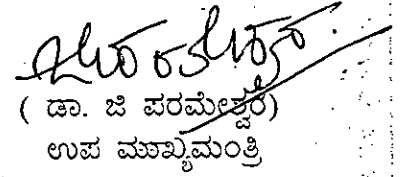 ( ಡಾ. ಜಿ ಪರಮೇಶ್ವರ)
ಉಪ ಮುಖ್ಯಮಂತ್ರಿ